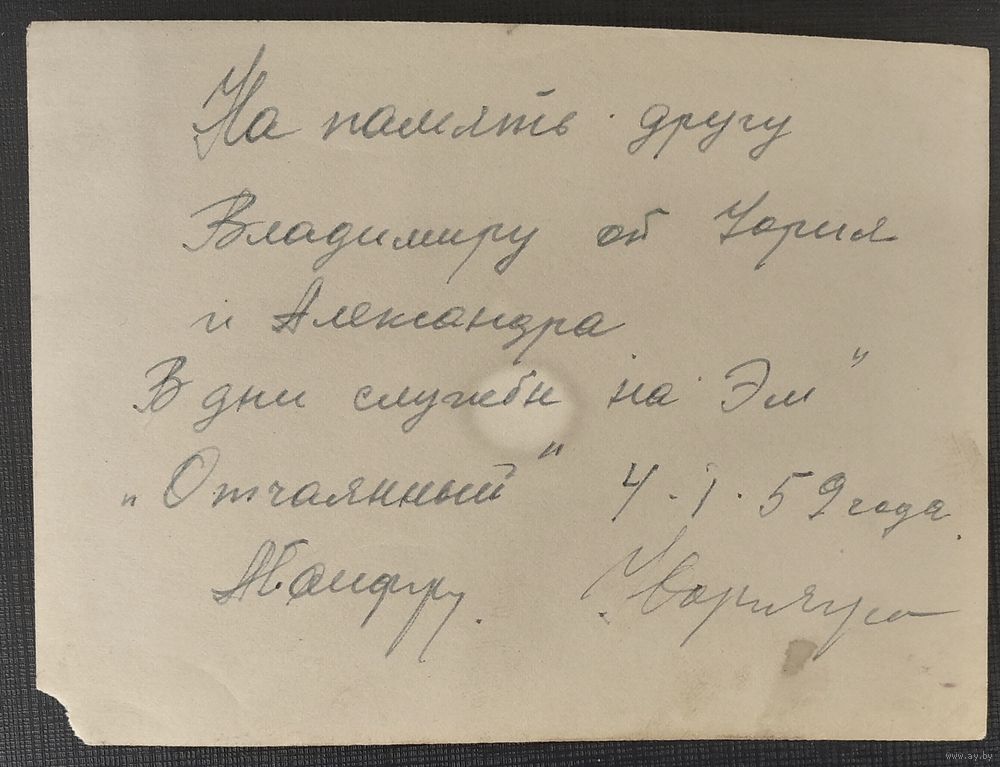 На память другу
Владимиру от Юрия
и Александра
В дни службы на Эм"
„Отчаянный" 4.I.59 года.
www.ay.by